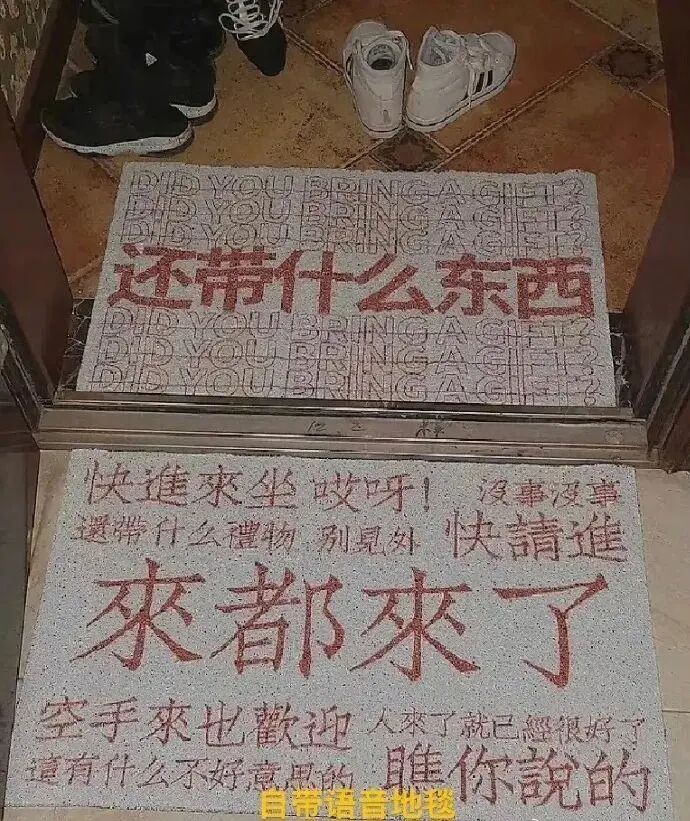 DID YOU BRING A GIFT?
DID YOU BRING A GIFT?
DID YOU BRING A GIFT?
还带什么东西
DID YOU BRING A GIFT?
DID YOU BRING A GIFT?
DID YOU BRING A GIFT?
快進來坐 哎呀！ 沒事沒事
還帶什么禮物 別見外 快請進
來都來了
空手來也歡迎 人來了就已經很好了
這有什么不好意思的 瞧你說的
自带语音地毯